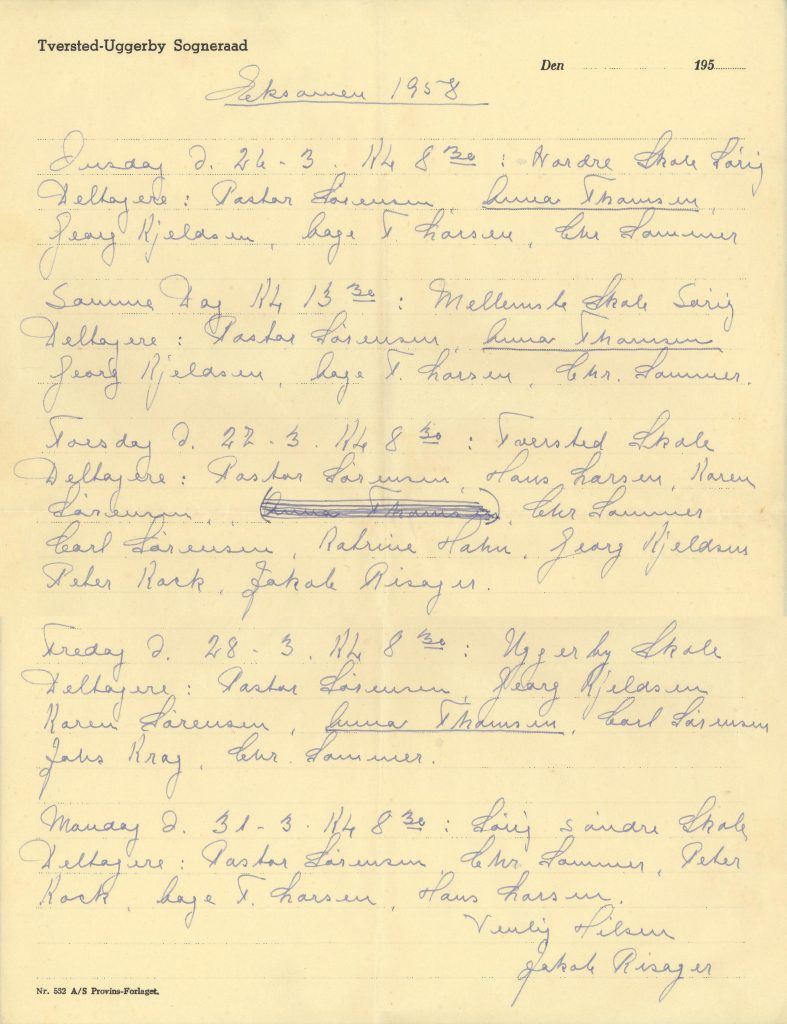 Tversted-Uggerby Sogneraad
Den 195
Eksamen 1958
Onsdag d. 26-3. Kl 8 30 : Nordre Skole Sørig
Deltagere : Pastor Sørensen, Anna Thomsen,
Georg Kjeldsen, Aage T. Larsen, Chr Sommer
Samme Dag Kl 13 30 : Mellemste Skole Sørig
Deltagere : Pastor Sørensen, Anna Thomsen
Georg Kjeldsen, Aage T. Larsen, Chr. Sommer.
Torsdag d. 27-3. Kl 8 30 : Tversted Skole
Deltagere : Pastor Sørensen, Hans Larsen, Karen
Sørensen, (Anna Thomsen), Chr Sommer
Carl Sørensen, Katrine Hahn, Georg Kjeldsen
Peter Kock, Jakob Risager.
Fredag d. 28-3. Kl 8 30 : Uggerby Skole
Deltagere : Pastor Sørensen, Georg Kjeldsen
Karen Sørensen, Anna Thomsen, Carl Sørensen
Johs Krag, Chr. Sommer.
Mandag d. 31-3. Kl 8 30 : Sørig søndre Skole
Deltagere : Pastor Sørensen, Chr Sommer, Peter
Kock, Aage T. Larsen, Hans Larsen.
Venlig Hilsen
Jakob Risager
Nr. 532 A/S Provins-Forlaget.